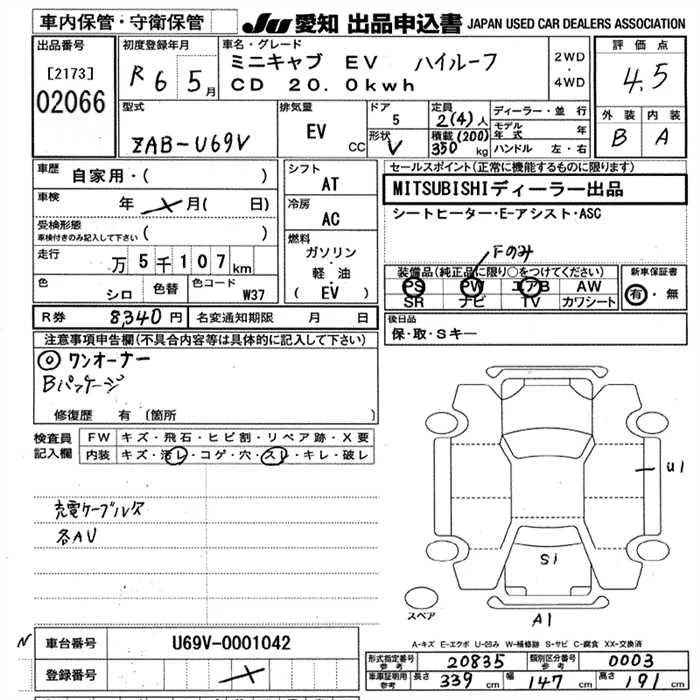 車内保管・守衛保管
JU 愛知 出品申込書 JAPAN USED CAR DEALERS ASSOCIATION
出品番号
[2173]
02066
初度登録年月
R 6 5月
車名・グレード
ミニキャブ EV ハイルーフ
CD 20.0kwh
2WD
・
4WD
評価点
4.5
外装 内装
B A
型式
ZAB-U69V
排気量
EV
CC
ドア
5
形状
V
定員
2(4)人
積載(200)
350kg
ディーラー・並行
モデル年式 年
ハンドル 左・右
車歴
自家用・( )
車検
年 月( 日)
受検形態
車検付きのみ記入して下さい ( )
走行
万5千107km
色
シロ
色替
色コード
W37
シフト
AT
冷房
AC
燃料
ガソリン
・
軽油
(EV)
セールスポイント(正常に機能するものに限ります)
MITSUBISHIディーラー出品
シートヒーター・E-アシスト・ASC
Fのみ
装備品(純正品に限り○をつけてください)
PS PW エアB AW
SR ナビ TV カワシート
新車保証書
有・無
R券 8,340円 名変通知期限 月 日
後日品
保・取・Sキー
注意事項申告欄(不具合内容等は具体的に記入して下さい)
◎ ワンオーナー
Bパッケージ
修復歴 有 (箇所 )
検査員記入欄
FW キズ・飛石・ヒビ割・リペア跡・X要
内装 キズ・汚レ・コゲ・穴・スレ・キレ・破レ
充電ケーブル欠
各AU
U1
S1
A1
スペア
A-キズ E-エクボ U-凹み W-補修跡 S-サビ C-腐食 XX-交換済
N
車台番号 U69V-0001042
登録番号
形式指定番号 参考 20835 類別区分番号 参考 0003
車庫証明用 参考 長さ 339cm 幅 147cm 高さ 191cm